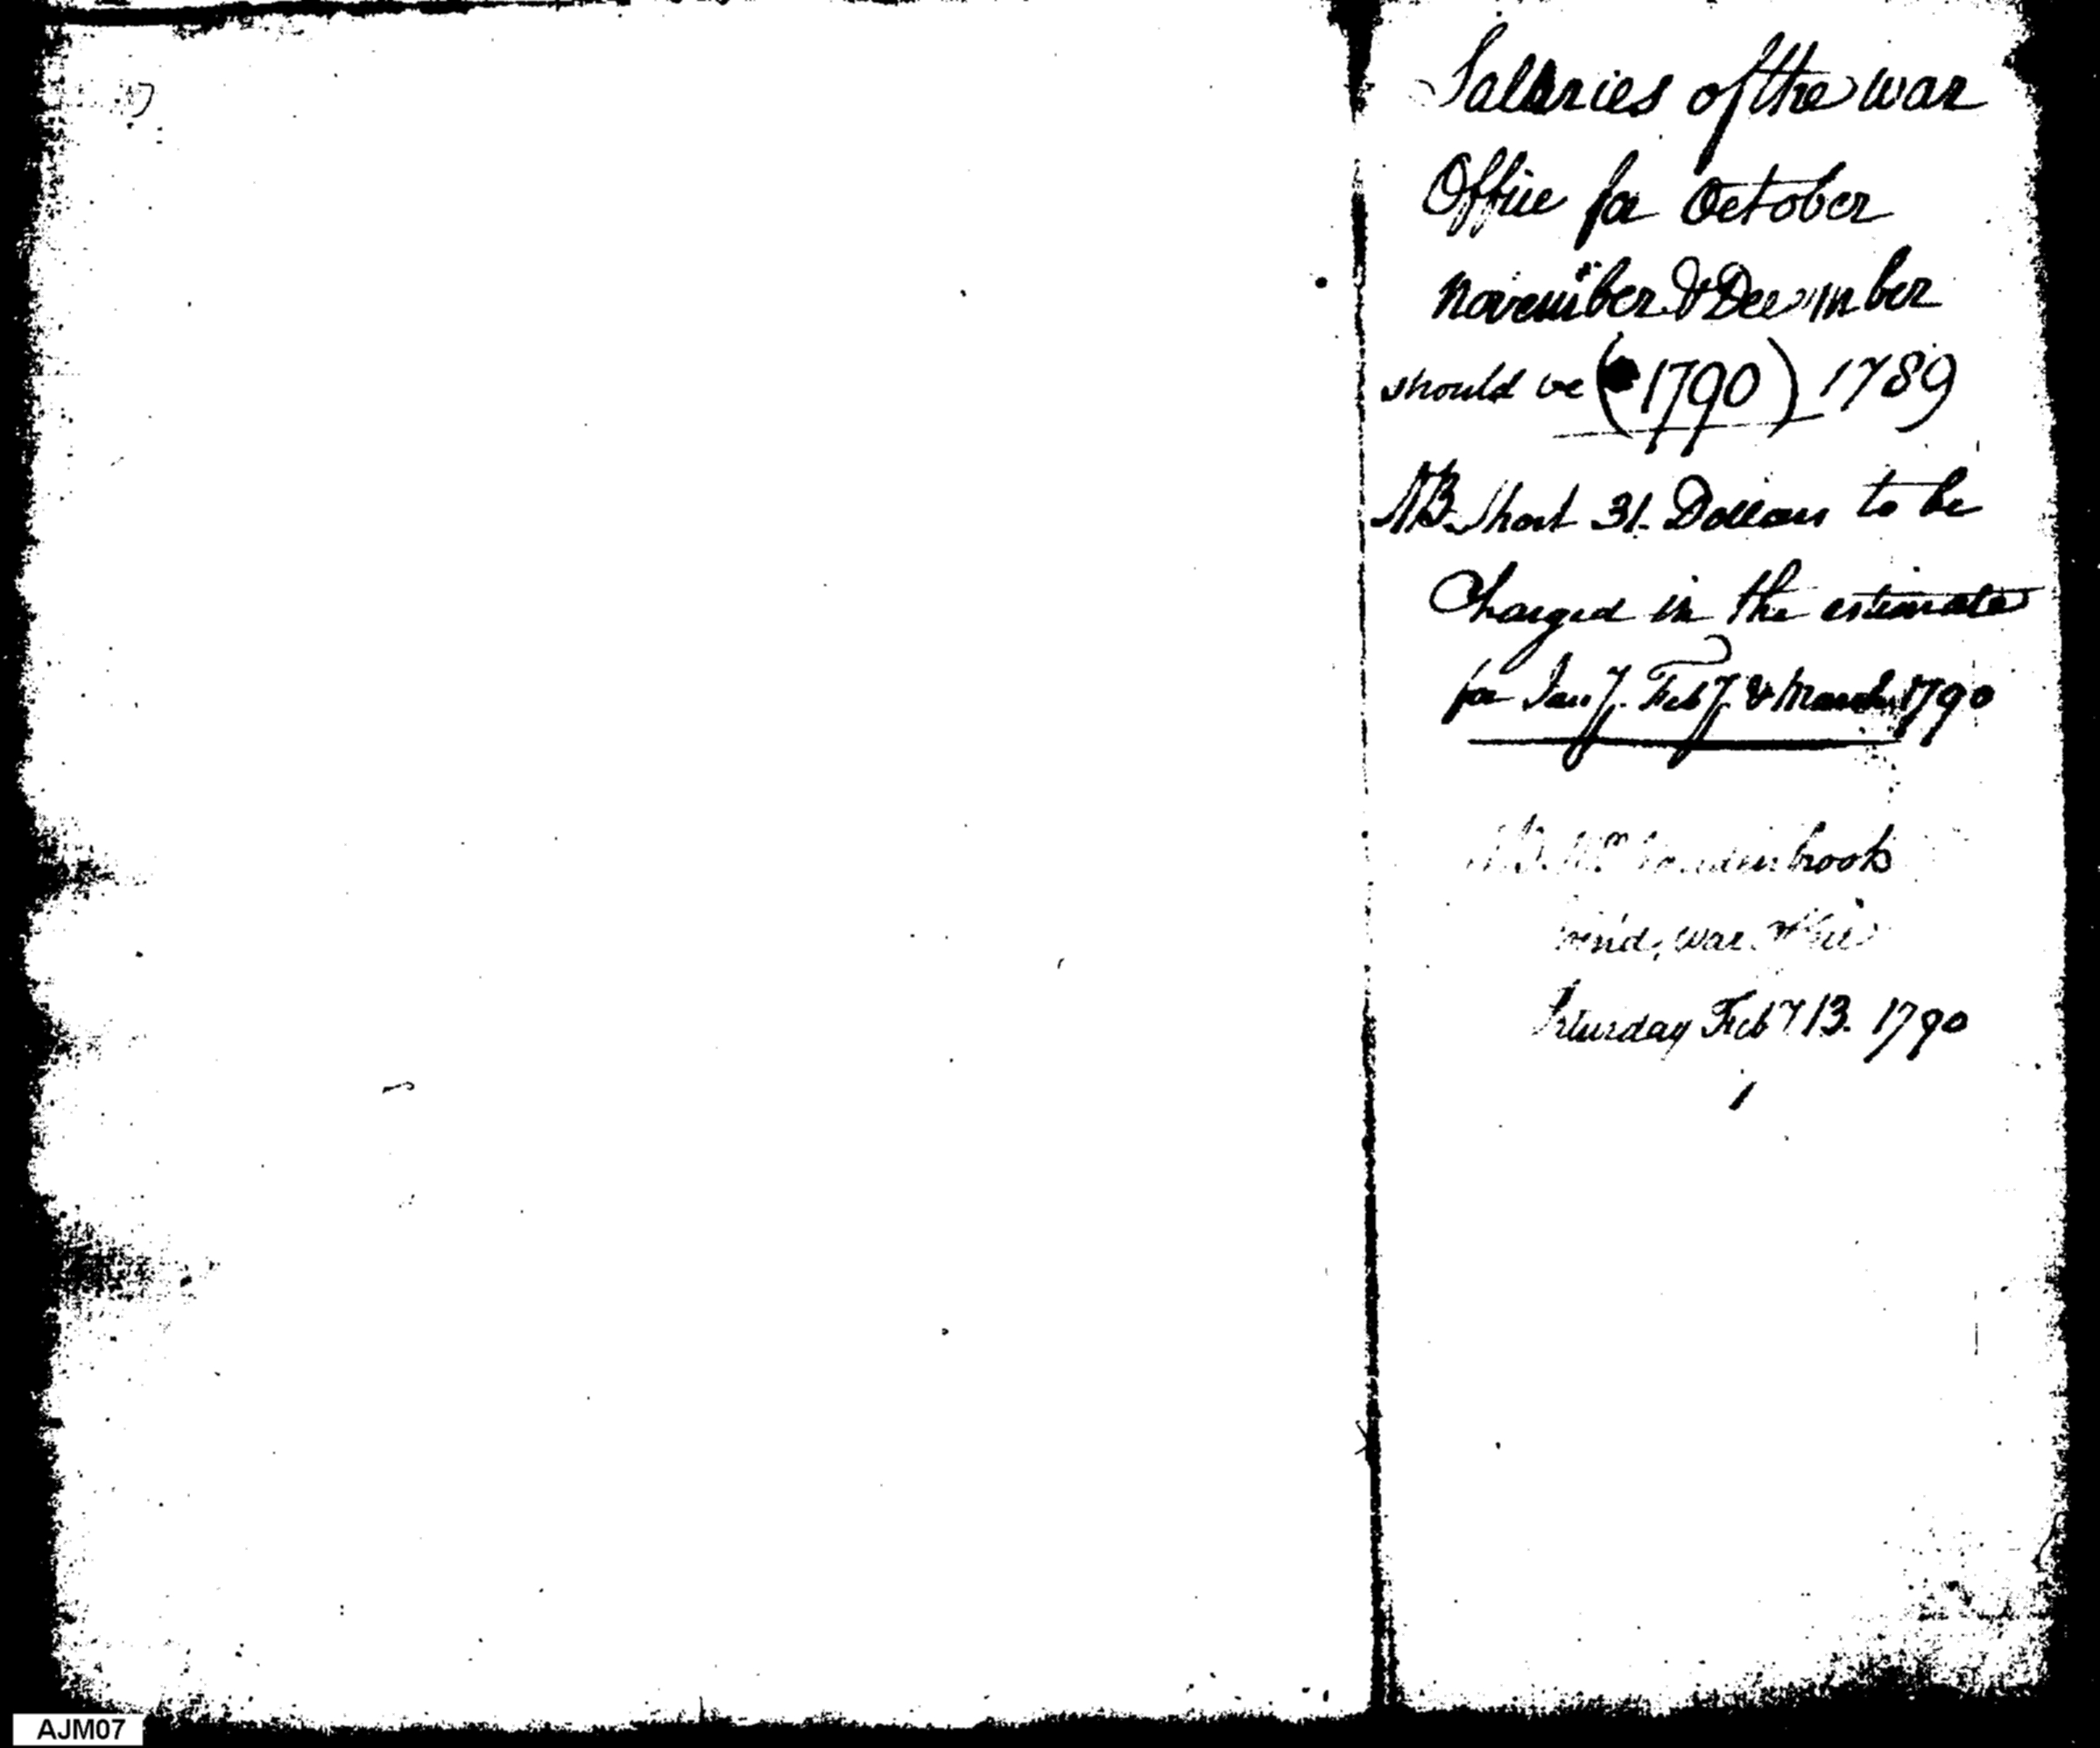 Salaries of the war
Office for October
November & December
should be (1790) 1789
NB. Short 31. Dollars to be
Charged in the estimate
for Jany. Feby. & March 1790
brook
war Office
Saturday Feby 13. 1790
AJM07